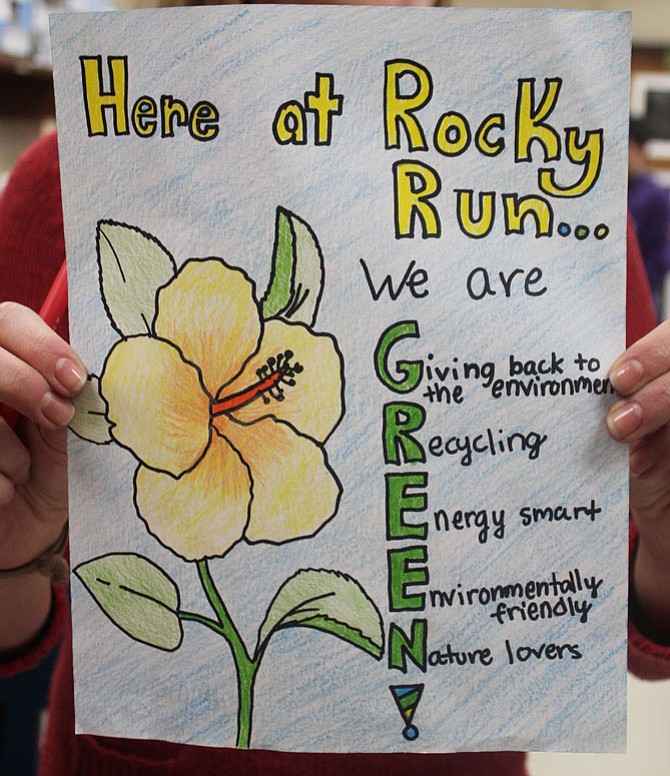 Here at Rocky
Run...
We are
Giving back to
the environmen
Recycling
Energy smart
Environmentally
friendly
Nature lovers
!